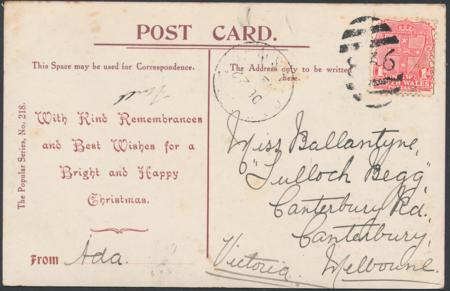 POST CARD.
This Space may be used for Correspondence.
The Address only to be written here.
The Popular Series, No. 218.
With Kind Remembrances
and Best Wishes for a
Bright and Happy
Christmas.
From Ada.
Miss Ballantyne,
"Tulloch Begg"
Canterbury Rd.,
Canterbury,
Victoria. Melbourne.